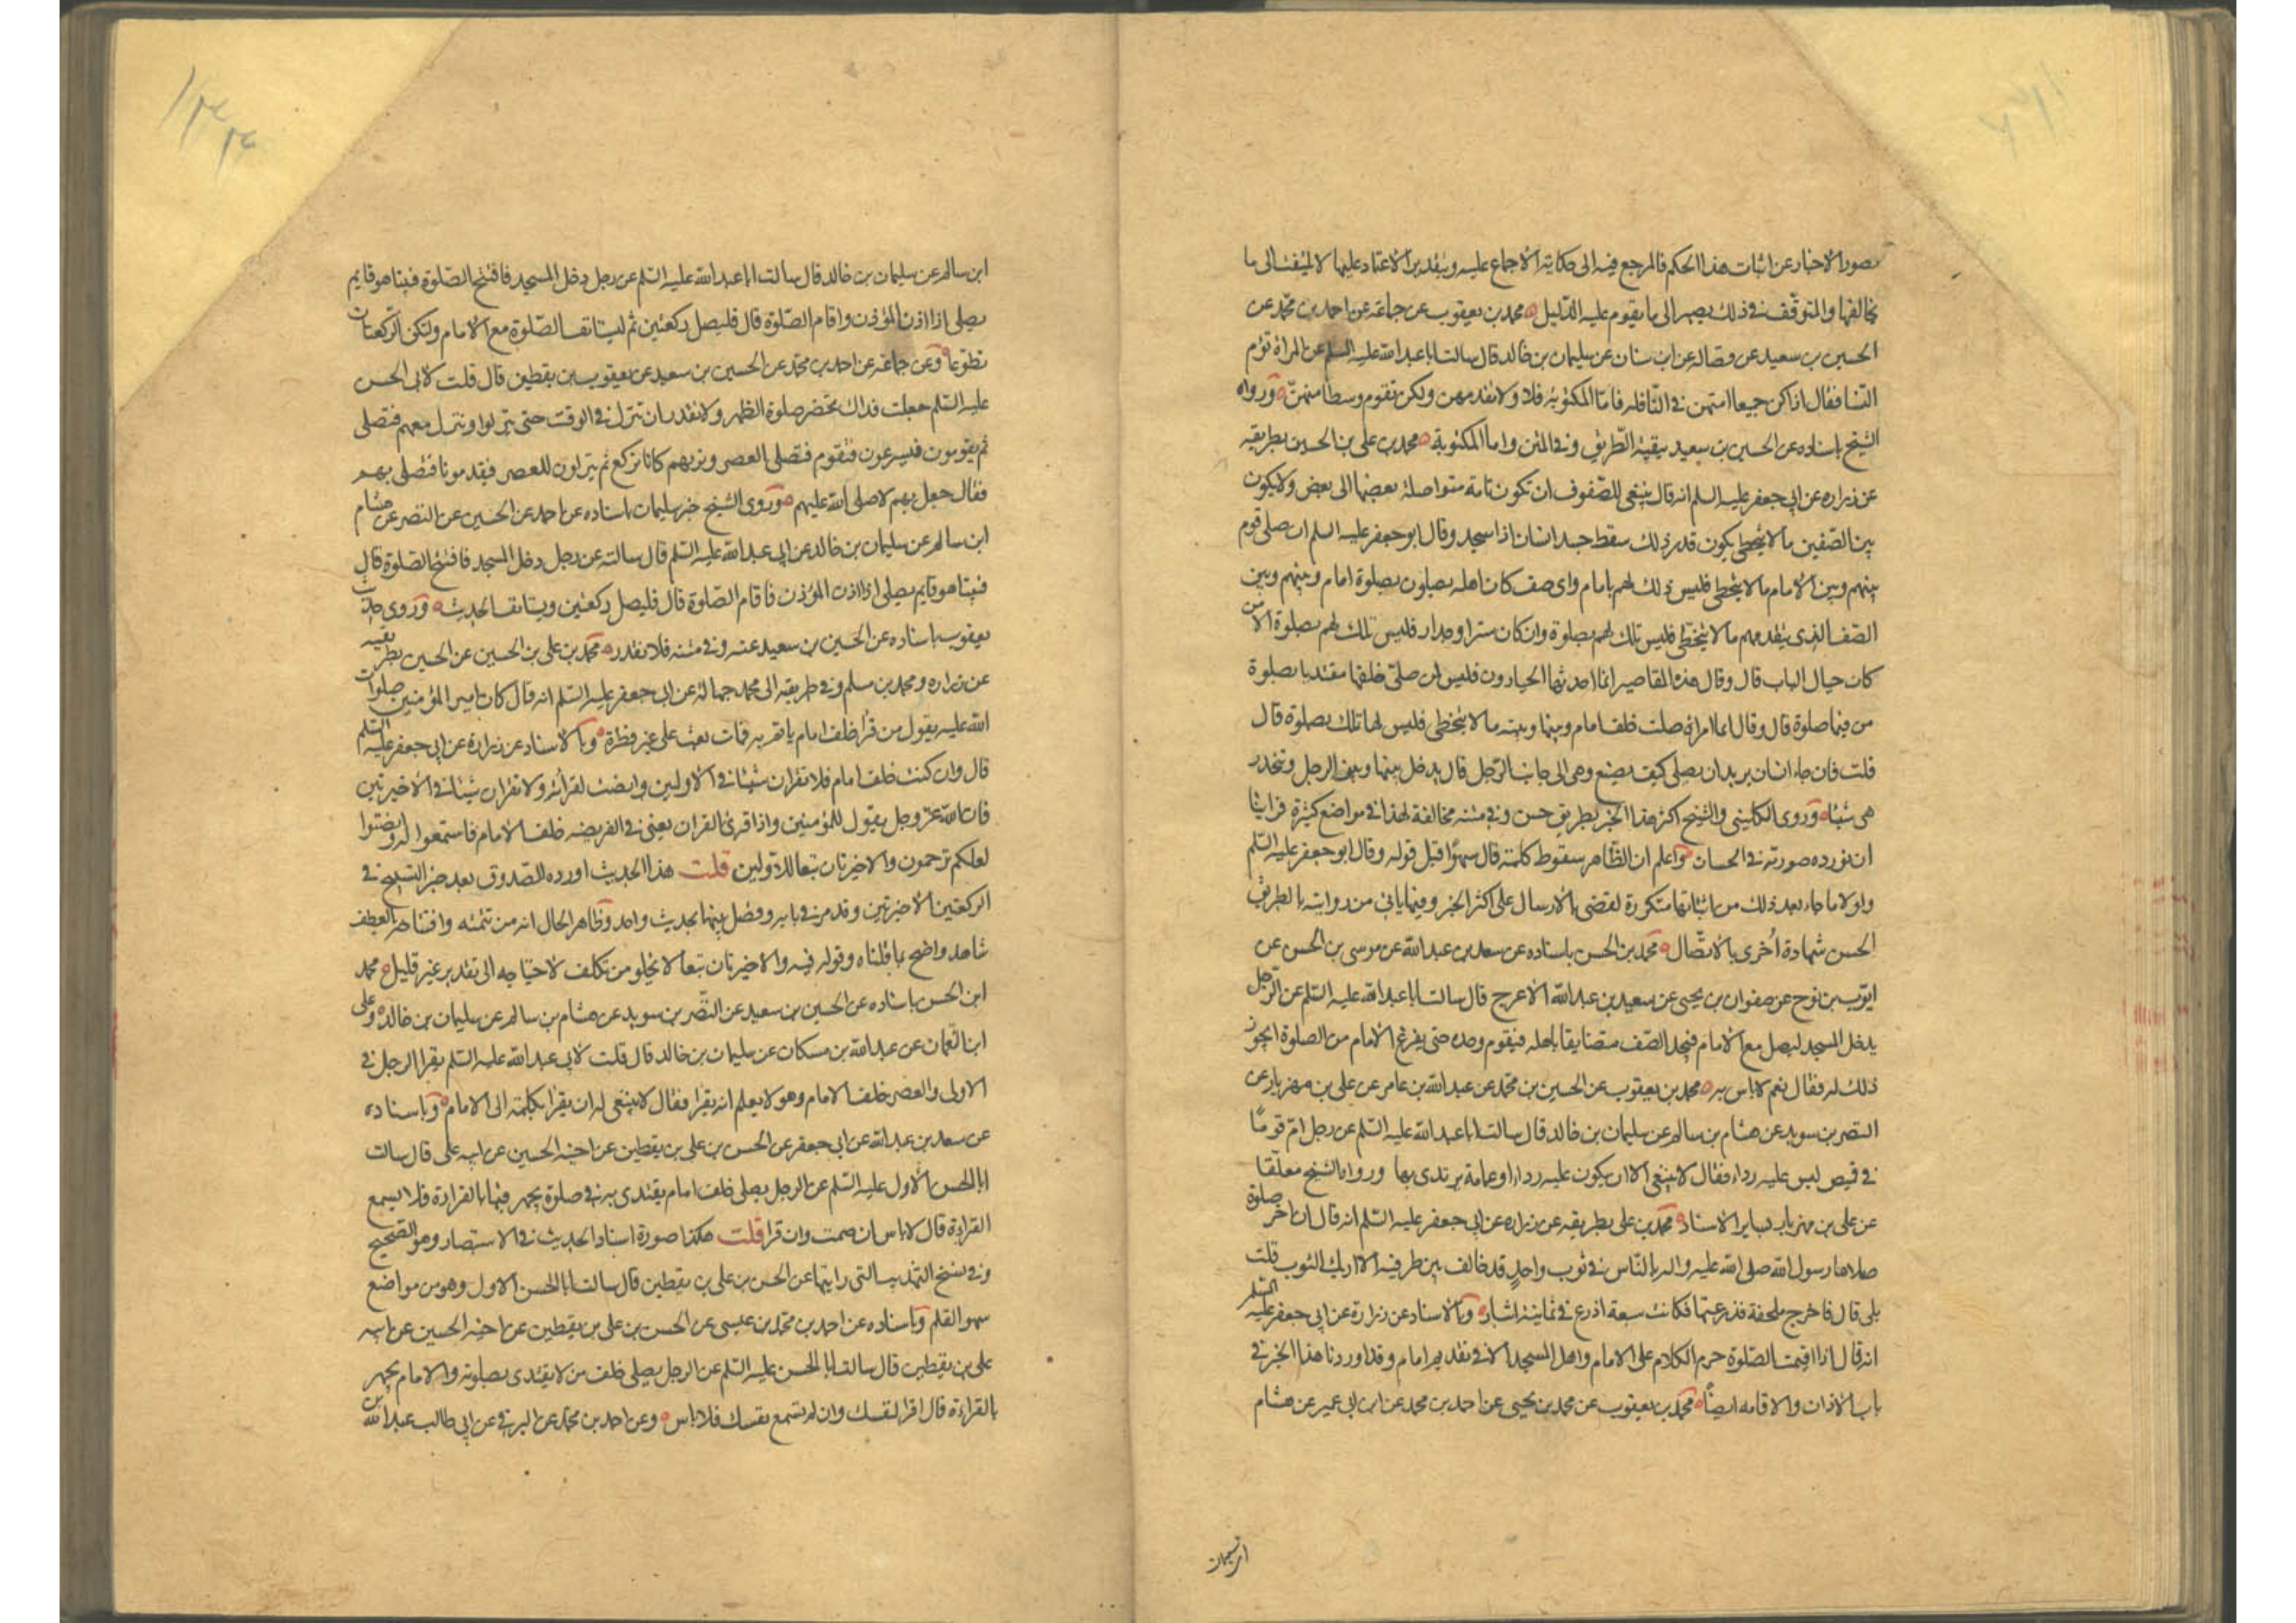 بصور الاخبار عن اثبات هذا الحكم فالمرجع فيه الى حكاية الاجماع عليه وبتقدير الاعتماد عليها لا يلتفت الى ما
خالفها والمتوقف في ذلك يصير الى ما يقوم عليه الدليل محمد بن يعقوب عن جماعة عن احمد بن محمد عن
الحسين بن سعيد عن فضالة عن ابن سنان عن سليمان بن خالد قال سالت ابا عبدالله عليه السلم عن المراة تؤم
النسا فقال اذا كن جميعا امتهن في النافلة فاما المكتوبة فلا ولا تقدمهن ولكن تقوم وسطا منهن ورواه
الشيخ باسناده عن الحسين بن سعيد ببقية الطريق وفي المتن واما المكتوبة محمد بن على بن الحسين بطريقه
عن زراره عن ابي جعفر عليه السلم انه قال ينبغي للصفوف ان تكون تامة متواصلة بعضها الى بعض ولا يكون
بين الصفين ما لا يتخطى يكون قدر ذلك سقط جسد انسان اذا سجد وقال ابو جعفر عليه السلم ان صلى قوم
بينهم وبين الامام ما لا يتخطى فليس ذلك لهم بامام واى صف كان اهله يصلون بصلوة امام وبينهم وبين
الصف الذى يتقدمهم ما لا يتخطى فليس تلك لهم بصلوة وان كان سترا او جدار فليس تلك لهم بصلوة الا من
كان حيال الباب قال وقال هذه المقاصير انما احدثها الجبارون فليس لمن صلى خلفها مقتديا بصلوة
من فيها صلوة قال وقال ايما امراة صلت خلف امام وبينها وبينه ما لا يتخطى فليس لها تلك بصلوة قال
قلت فان جاء انسان يريد ان يصلى كيف يصنع وهى الى جانب الرجل قال يدخل بينها وبين الرجل وتنحدر
هى شيئا وروى الكليني والشيخ اكثر هذا الخبر بطريق حسن وفي متنه مخالفة لهذا في مواضع كثيرة فراينا
ان نورده بصورته في الحسان واعلم ان الظاهر سقوط كلمة قال سهوا قبل قوله وقال ابو جعفر عليه السلم
ولولا ما جاء بعد ذلك من اثباتها متكررة لقضى بالارسال على اكثر الخبر وفيما ياتي من روايته بالطريق
الحسن شهادة اخرى بالاتصال محمد بن الحسن باسناده عن سعد بن عبدالله عن موسى بن الحسن عن
ايوب بن نوح عن صفوان بن يحيى عن سعيد بن عبدالله الاعرج قال سالت ابا عبدالله عليه السلم عن الرجل
يدخل المسجد ليصل مع الامام فيجد الصف متضايقا باهله فيقوم وحده حتى يفرغ الامام من الصلوة ايجوز
ذلك له فقال نعم لا باس به محمد بن يعقوب عن الحسين بن محمد عن عبدالله بن عامر عن على بن مهزيار عن
النضر بن سويد عن هشام بن سالم عن سليمان بن خالد قال سالت ابا عبدالله عليه السلم عن رجل ام قوما
في قميص ليس عليه رداء فقال لا ينبغي الا ان يكون عليه رداء او عمامة يرتدى بها ورواه الشيخ معلقا
عن على بن مهزيار بساير الاسناد محمد بن على بطريقه عن زراره عن ابي جعفر عليه السلم انه قال ان اخر صلوة
صلاها رسول الله صلى الله عليه واله بالناس في ثوب واحد قد خالف بين طرفيه الا اريك الثوب قلت
بلى قال فاخرج ملحفة فذرعتها فكانت سبعة اذرع في ثمانية اشبار وبالاسناد عن زرارة عن ابي جعفر عليه السلم
انه قال اذا اقيمت الصلوة حرم الكلام على الامام واهل المسجد الا في تقديم امام وقد اوردنا هذا الخبر في
باب الاذان والاقامه ايضا محمد بن يعقوب عن محمد بن يحيى عن احمد بن محمد عن ابن ابي عمير عن هشام
ابن سالم عن سليمان بن خالد قال سالت ابا عبدالله عليه السلم عن رجل دخل المسجد فافتتح الصلوة فبينا هو قايم
يصلى اذا اذن المؤذن واقام الصلوة قال فليصل ركعتين ثم ليستانف الصلوة مع الامام ولتكن الركعتان
تطوعا وعن جماعة عن احمد بن محمد عن الحسين بن سعيد عن يعقوب بن يقطين قال قلت لابى الحسن
عليه السلم جعلت فداك تحضر صلوة الظهر ولا نقدر ان ننزل في الوقت حتى ينزلوا وننزل معهم فنصلى
ثم يقومون فيسرعون فنقوم فنصلى العصر ونريهم كانا نركع ثم ينزلون للعصر فيقدمونا فنصلى بهم
فقال صل بهم لا صلى الله عليهم وروى الشيخ خبر سليمان باسناده عن احمد عن الحسين عن النضر عن هشام
ابن سالم عن سليمان بن خالد عن ابي عبدالله عليه السلم قال سالته عن رجل دخل المسجد فافتتح الصلوة قال
فبينا هو قايم يصلى اذا اذن المؤذن فاقام الصلوة قال فليصل ركعتين ويستانف الحديث وروى حديث
يعقوب باسناده عن الحسين بن سعيد عنه وفي متنه فلا نقدر محمد بن على بن الحسين عن الحسين بطريقيه
عن زراره ومحمد بن مسلم وفي طريقه الى محمد جهالة عن ابي جعفر عليه السلم انه قال كان امير المؤمنين صلوات
الله عليه يقول من قرا خلف امام ياتم به فمات بعث على غير فطرة وبالاسناد عن زرارة عن ابي جعفر عليه السلم
قال وان كنت خلف امام فلا تقران شيئا في الاولين وانصت لقرائته ولا تقران شيئا في الاخيرتين
فان الله عز وجل يقول للمؤمنين واذا قرئ القران يعني في الفريضه خلف الامام فاستمعوا له وانصتوا
لعلكم ترحمون والاخيرتان تبعا للاولين قلت هذا الحديث اورده الصدوق بعد خبر التسبيح في
الركعتين الاخيرتين وقد مر في بابه وفصل بينهما بحديث واحد وظاهر الحال انه من تتمته وافتتاحه بالعطف
شاهد واضح بما قلناه وقوله فيه والاخيرتان تبعا لا يخلو من تكلف لاحتياجه الى تقدير غير قليل محمد
ابن الحسن باسناده عن الحسين بن سعيد عن النضر بن سويد عن هشام بن سالم عن سليمان بن خالد وعلى
ابن النعمان عن عبدالله بن مسكان عن سليمان بن خالد قال قلت لابي عبدالله عليه السلم يقرا الرجل في
الاولى والعصر خلف الامام وهو لا يعلم انه يقرا فقال لا ينبغي له ان يقرا يكله الى الامام وباسناده
عن سعد بن عبدالله عن ابي جعفر عن الحسن بن على بن يقطين عن اخيه الحسين عن ابيه على قال سالت
ابا الحسن الاول عليه السلم عن الرجل يصلى خلف امام يقتدى به في صلوة يجهر فيها بالقراءة فلا يسمع
القراءة قال لا باس ان صمت وان قرا قلت هكذا صورة اسناد الحديث في الاستبصار وهو الصحيح
وفي نسخ التهذيب التى رايتها عن الحسن بن على بن يقطين قال سالت ابا الحسن الاول وهو من مواضع
سهو القلم وباسناده عن احمد بن محمد بن عيسى عن الحسن بن على بن يقطين عن اخيه الحسين عن ابيه
على بن يقطين قال سالت ابا الحسن عليه السلم عن الرجل يصلى خلف من لا يقتدى بصلوته والامام يجهر
بالقراءة قال اقرا لنفسك وان لم تسمع نفسك فلا باس وعن احمد بن محمد عن البرقي عن ابي طالب عبدالله بن